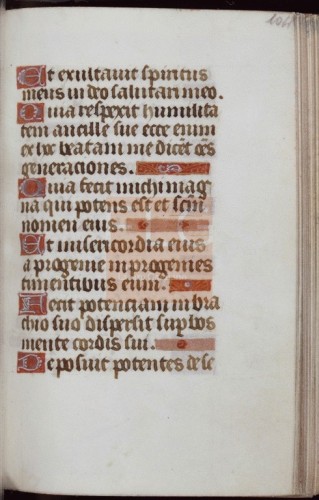 104
Et exultavit spiritus
meus in deo salutari meo.
Quia respexit humilita
tem ancille sue ecce enim
ex hoc beatam me dicēt oēs
generaciones.
Quia fecit michi mag
na qui potens est et scm̄
nomen eius.
Et misericordia eius
a progenie in progenies
timentibus eum.
Fecit potenciam in bra
chio suo dispersit suꝑbos
mente cordis sui.
Deposuit potentes de se